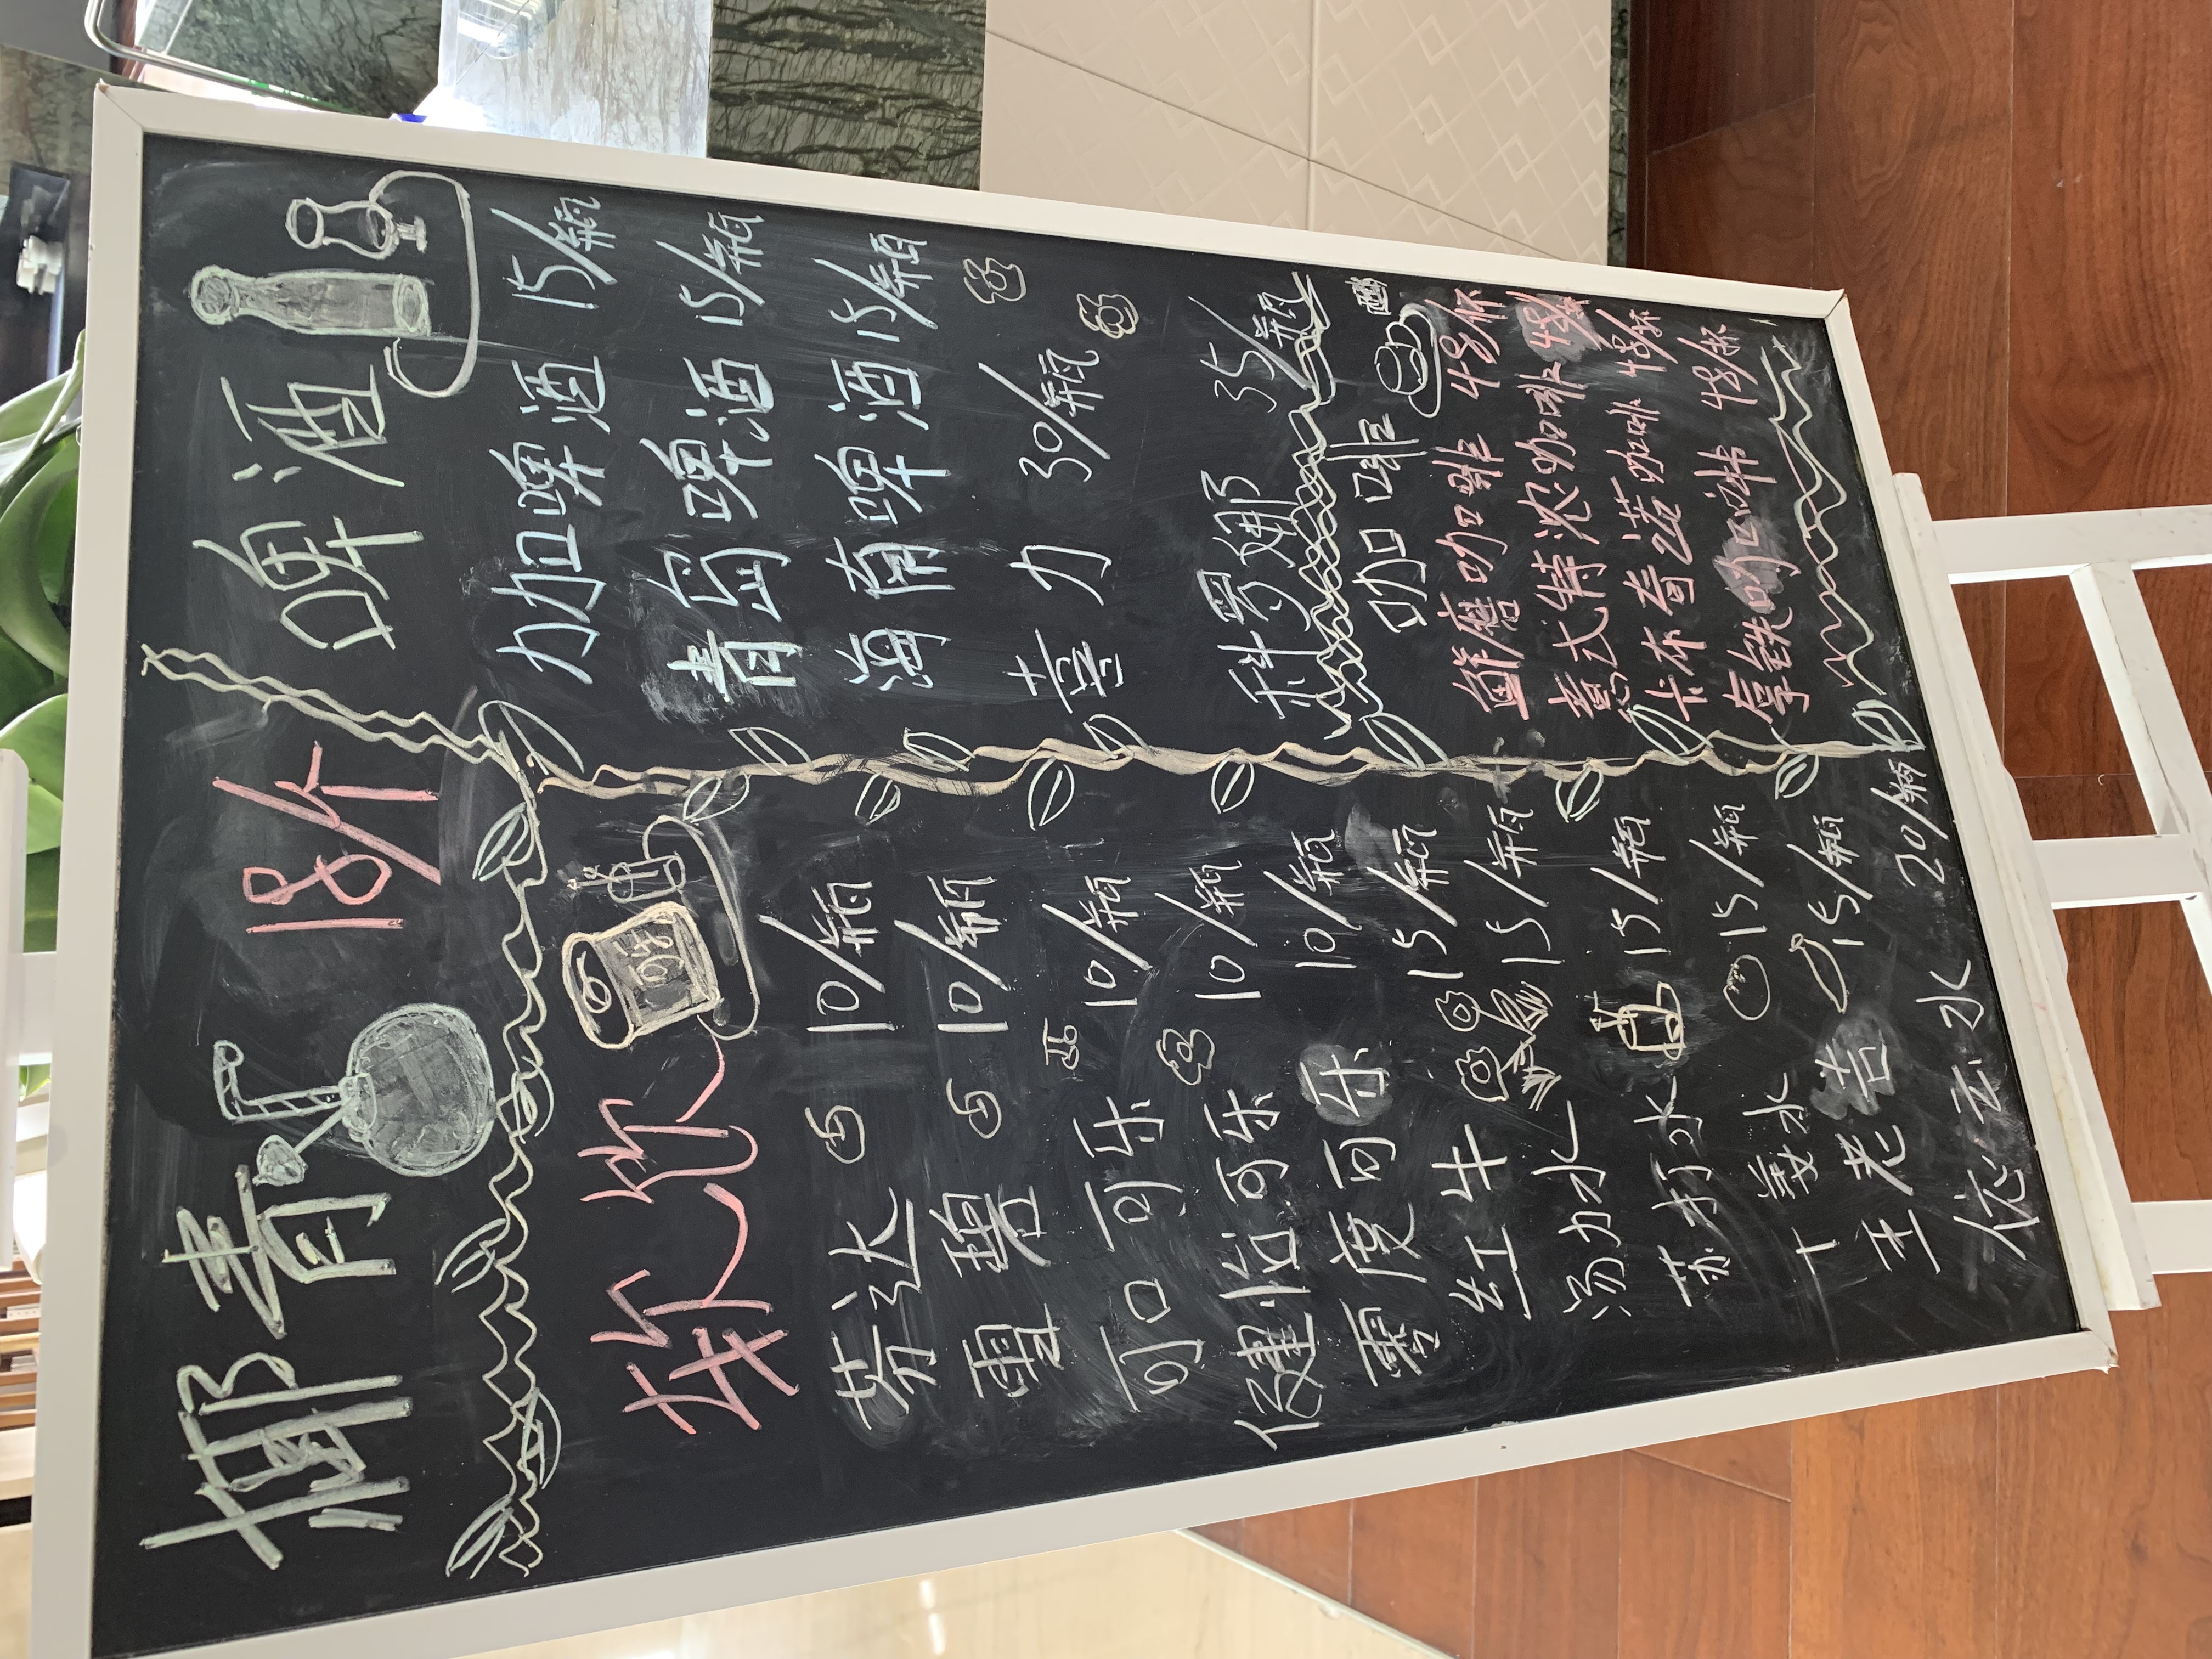 椰青 18/个
软饮
可乐
芬达 10/瓶
雪碧 10/瓶
可口可乐 10/瓶
健怡可乐 10/瓶
零度可乐 10/瓶
红牛 15/瓶
汤力水 15/瓶
苏打水 15/瓶
干姜水 15/瓶
王老吉 15/瓶
依云水 20/瓶
啤酒
力加啤酒 15/瓶
青岛啤酒 15/瓶
海南啤酒 15/瓶
喜力 30/瓶
科罗娜 35/瓶
咖啡
鲜磨咖啡 48/杯
意式特浓咖啡 48/杯
卡布奇诺咖啡 48/杯
拿铁咖啡 48/杯